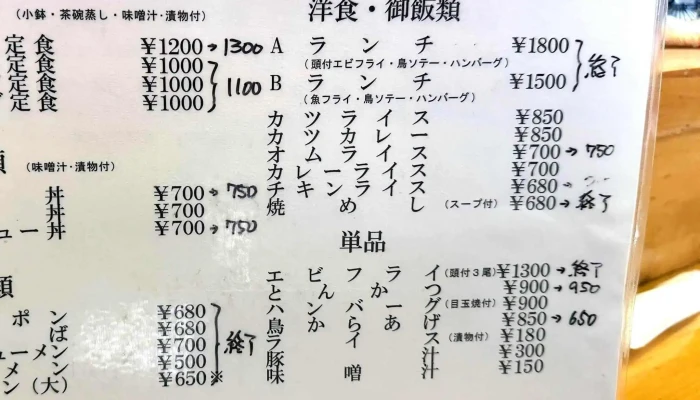 (小鉢・茶碗蒸し・味噌汁・漬物付)
定食 ¥1200→1300
定食 ¥1000
定食 ¥1000 1100
定食 ¥1000
類 (味噌汁・漬物付)
丼 ¥700→750
丼 ¥700
ュー丼 ¥700→750
類
ポン ¥680
ば ¥680
ューメン ¥700 終了
メン ¥500
メン(大) ¥650※
洋食・御飯類
Aランチ ¥1800
(頭付エビフライ・鳥ソテー・ハンバーグ) 終了
Bランチ ¥1500
(魚フライ・鳥ソテー・ハンバーグ)
カツライス ¥850
カツカレー ¥850
オムライス ¥700→750
カレーライス ¥700
チキンライス ¥680→
焼めし(スープ付) ¥680→終了
単品
エビフライ(頭付3尾) ¥1300→終了
とんかつ ¥900→950
ハンバーグ(目玉焼付) ¥900
鳥からあげ ¥850→650
ライス(漬物付) ¥180
豚汁 ¥300
味噌汁 ¥150